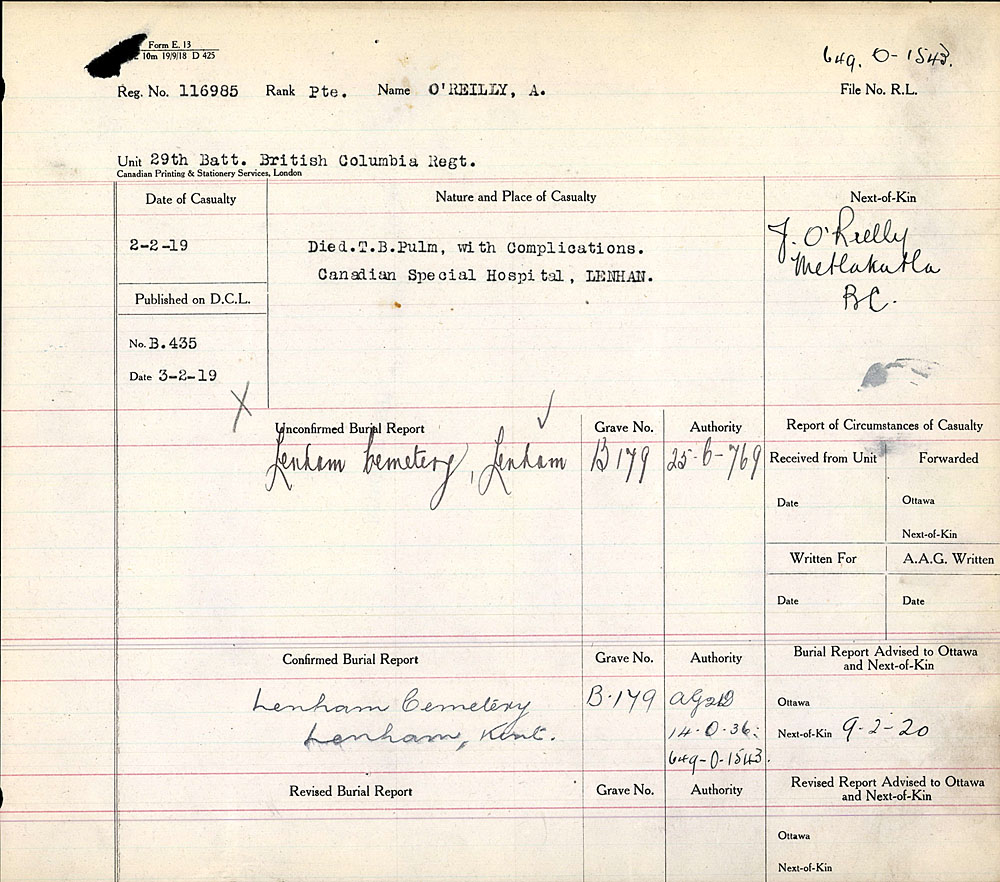 Form E. 13
10m 19/9/18 D 425
649. O-1543.
Reg. No. 116985 Rank Pte. Name O'REILLY, A.
File No. R.L.
Unit 29th Batt. British Columbia Regt.
Canadian Printing & Stationery Services, London
Date of Casualty
Nature and Place of Casualty
Next-of-Kin
2-2-19
Died.T.B.Pulm, with Complications.
Canadian Special Hospital, LENHAN.
J. O'Reilly
Metlakatla
BC.
Published on D.C.L.
No. B.435
Date 3-2-19
Unconfirmed Burial Report
Grave No.
Authority
Report of Circumstances of Casualty
Lenham Cemetery, Lenham
B 179
25-6-769
Received from Unit
Forwarded
Date
Ottawa
Next-of-Kin
Written For
A.A.G. Written
Date
Date
Confirmed Burial Report
Grave No.
Authority
Burial Report Advised to Ottawa
and Next-of-Kin
Lenham Cemetery
Lenham, Kent.
B.179
14.0.36.
649-O-1543.
Ottawa
Next-of-Kin 9-2-20
Revised Burial Report
Grave No.
Authority
Revised Report Advised to Ottawa
and Next-of-Kin
Ottawa
Next-of-Kin